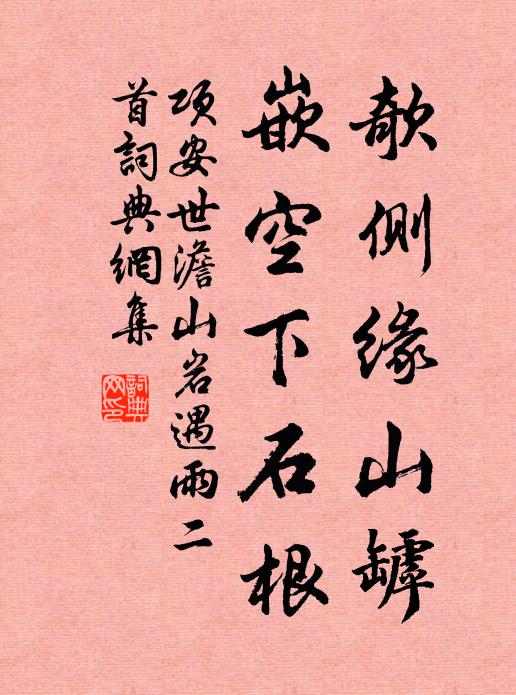 欹側緣山罅
嵌空下石根
項安世澹山岩遇雨二
首詞典網集
詞典網印